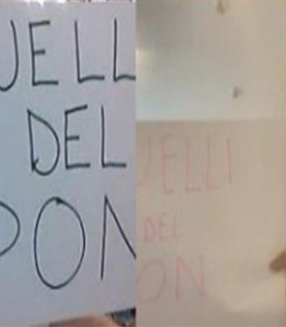 UELL
DEL
PON
UELLI
DEL
ON